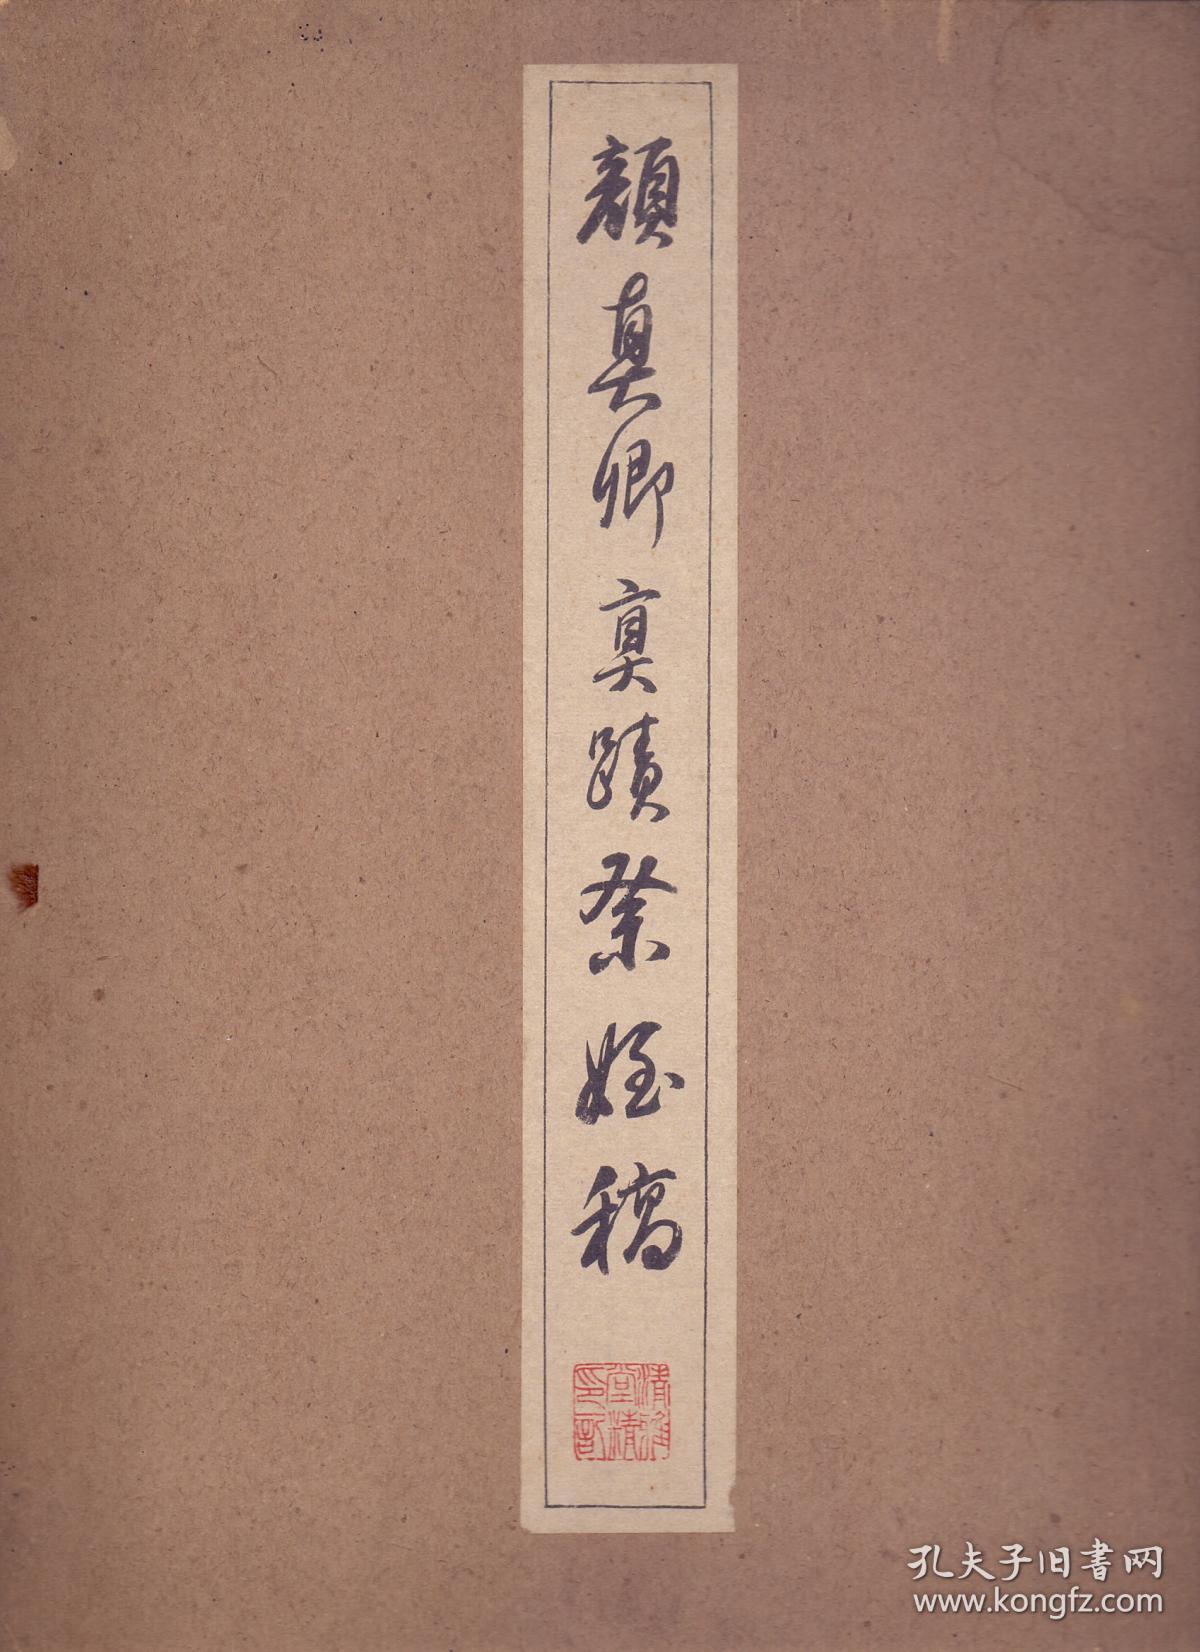 顏真卿真蹟祭姪稿
清雅堂精印記
孔夫子旧書网
www.kongfz.com